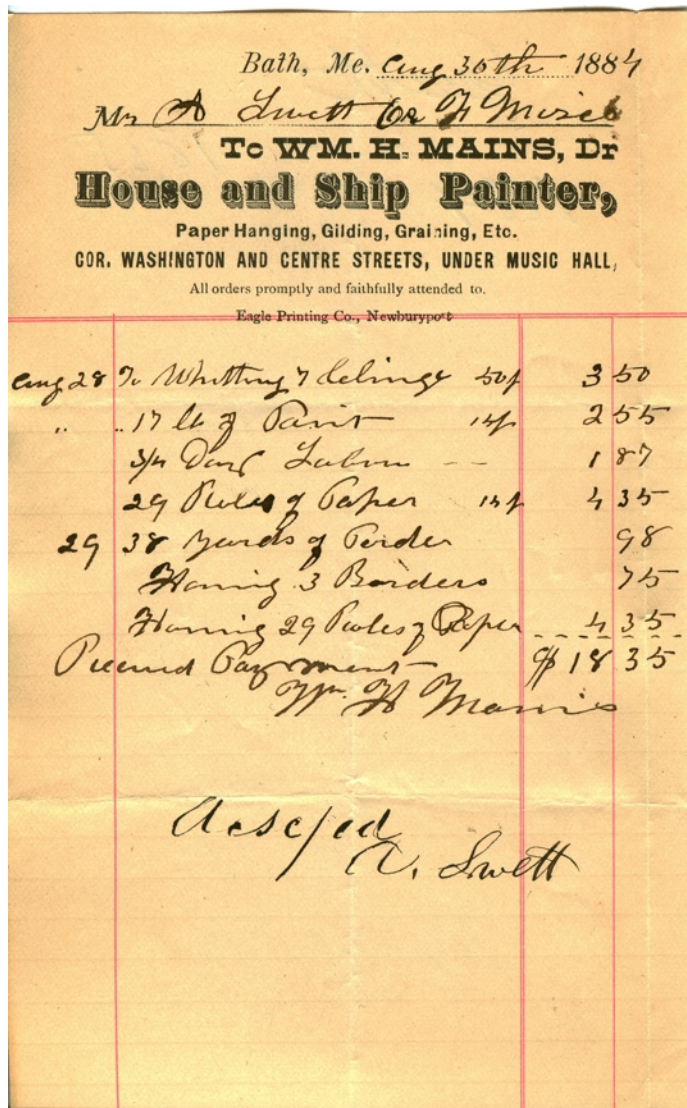 Bath, Me. Aug 30th 1884
Mr A Swett Or F Moses
To WM. H. MAINS, Dr
House and Ship Painter,
Paper Hanging, Gilding, Graining, Etc.
COR. WASHINGTON AND CENTRE STREETS, UNDER MUSIC HALL,
All orders promptly and faithfully attended to.
Eagle Printing Co., Newburyport
Aug 28 To Whitting 7 Celings 50 3 50
" " 17 lb of Paint 15 2 55
3/4 Days Labor -- 1 87
29 Roles of Paper 15 4 35
29 38 yards of Border 98
Haning 3 Borders 75
Haning 29 Roles of Paper 4 35
Received Payment $18 35
Wm H Mains
A. Swett